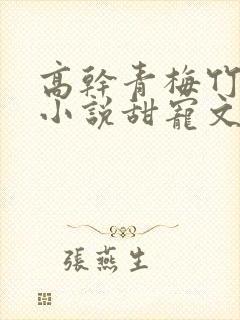 高幹青梅竹
小說甜寵文
張燕生